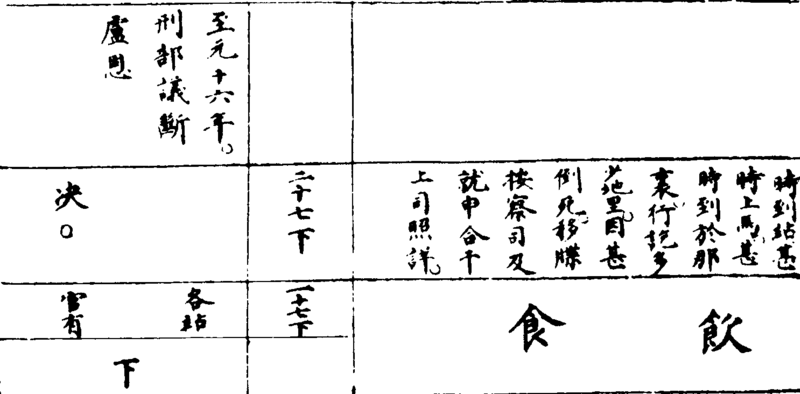 時到站甚
時上馬甚
時到於那
裏行訖多
少地里因甚
倒死移牒
按察司及
就申合干
上司照詳
飲
食
二十七下
一十七下
至元十六年
刑部議斷
盧思
决
各站
官有
下